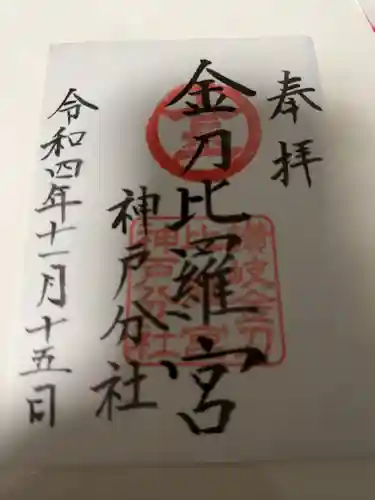 奉拝
金刀比羅宮
神戸分社
令和四年十一月十五日
讃岐金刀
比羅宮
神戸分社